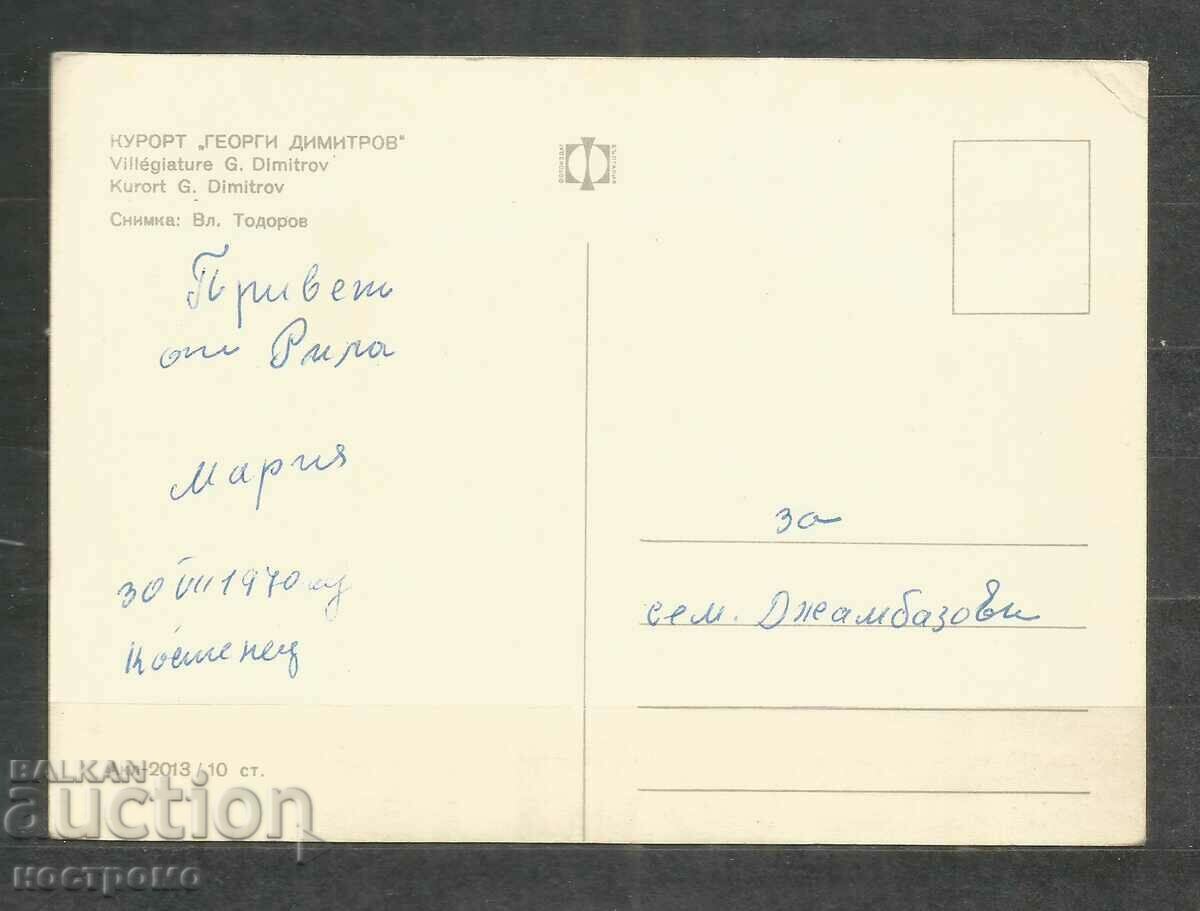 КУРОРТ „ГЕОРГИ ДИМИТРОВ“
Villégiature G. Dimitrov
Kurort G. Dimitrov
Снимка: Вл. Тодоров
ФОТОИЗДАТ БЪЛГАРИЯ
Привет
от Рила
Мария
30 VII 1970
Костенец
за
сем. Джамбазови
Акл-2013/10 ст.
BALKAN
auction
костромо